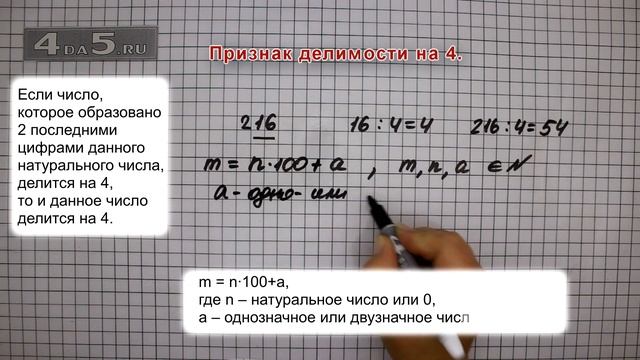 4DA5.RU
Признак делимости на 4.
Если число,
которое образовано
2 последними
цифрами данного
натурального числа,
делится на 4,
то и данное число
делится на 4.
216 16 : 4 = 4 216 : 4 = 54
m = n·100 + a , m, n, a ∈ N
a - одно- или
m = n·100+a,
где n – натуральное число или 0,
a – однозначное или двузначное числ